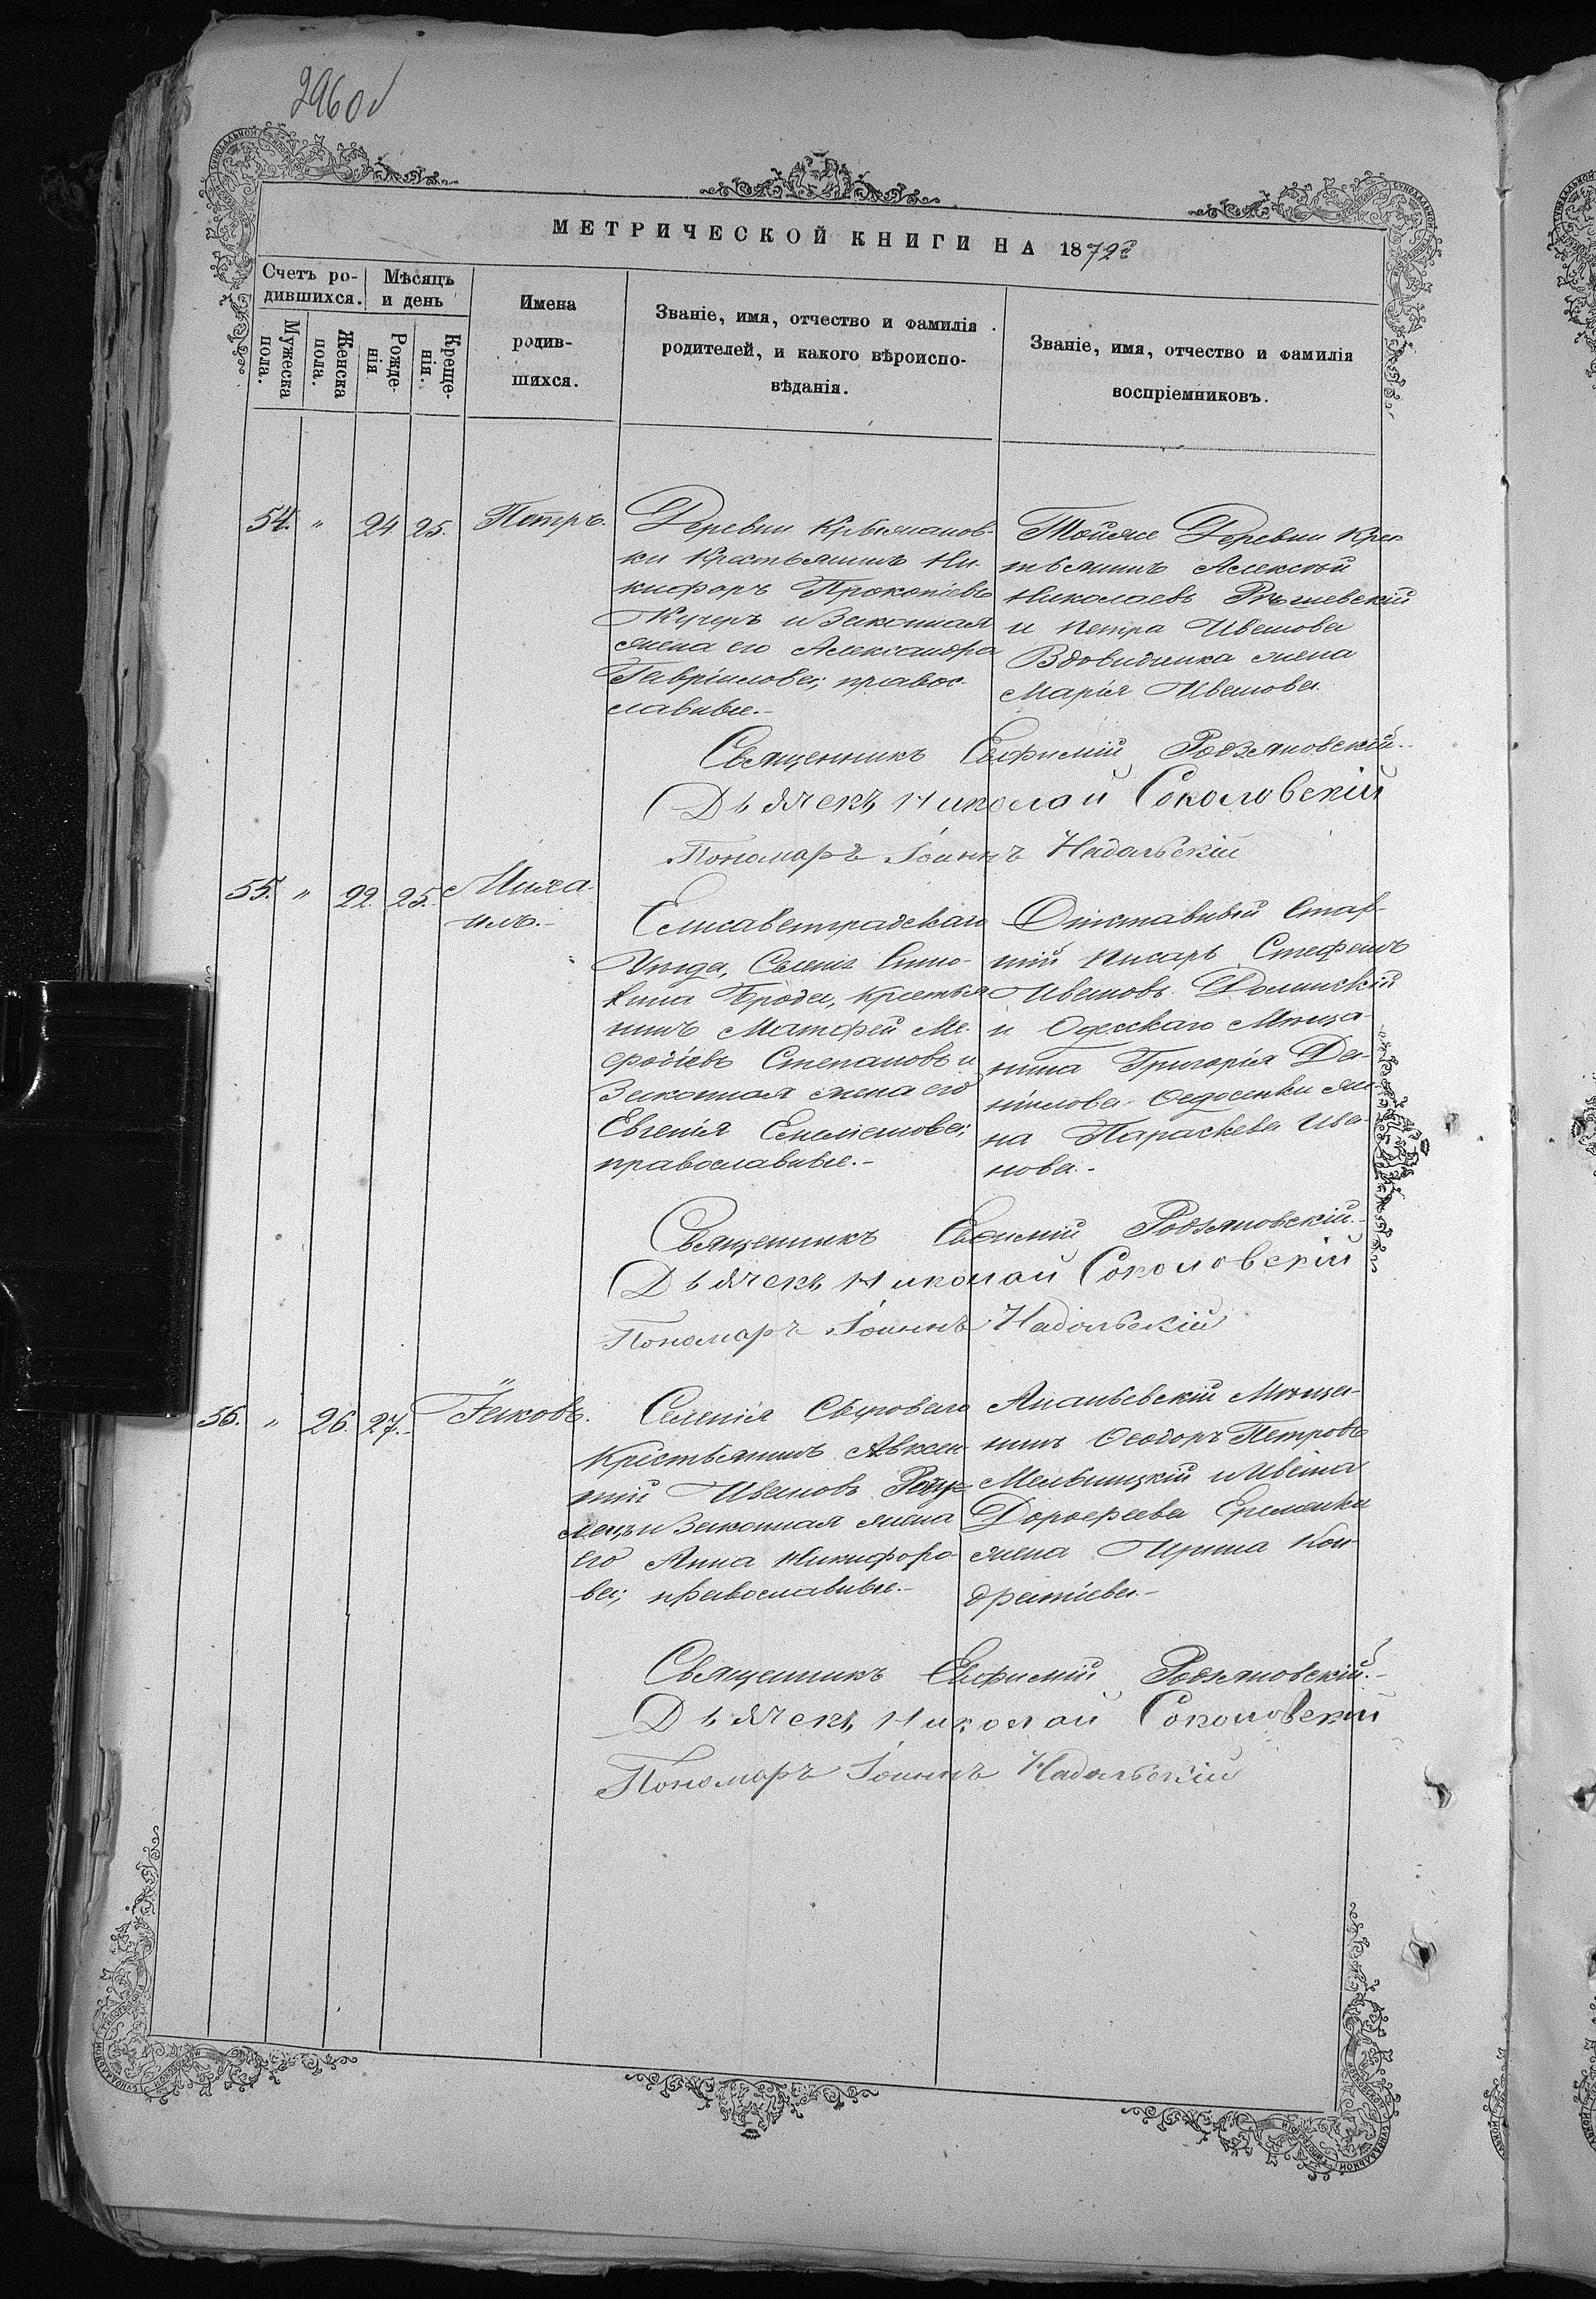 296об
МЕТРИЧЕСКОЙ КНИГИ НА 1872й
Счетъ ро-
дившихся.
Мѣсяцъ
и день
Мужеска
пола.
Женска
пола.
Рожде-
нія
Креще-
нія.
Имена
родив-
шихся.
Званіе, имя, отчество и фамилія
родителей, и какого вѣроиспо-
вѣданія.
Званіе, имя, отчество и фамилія
воспріемниковъ.
54. " 24 25. Петръ.
Деревни
ки Крестьянинъ Ни-
кифоръ Прокопіевъ
Кучеръ и Законная
жена его Александра
Гавріилова; правос-
лавные.-
Тойже Деревни Крес
тьянинъ Алексѣй
Николаевъ
и Петра Иванова
Вдовиченка жена
Марія Иванова.
Священникъ Евфимій Родзяновскій.
Дьячекъ Николай Соколовскій
Пономарь Іоаннъ Надольскій
55. " 22. 25. Миха-
илъ.-
Елисаветградскаго
Уѣзда, Селенія
Брода, крестья
нинъ Матфей Ме-
фодіевъ Степановъ и
Законная жена его
Евгенія Емеліанова;
православные.-
Отставный Стар-
шій Писарь Стефанъ
Ивановъ Долинскій
и Одесскаго Мѣща-
нина Григорія Да-
ніилова Ѳедосенки же-
на Параскева Ива-
нова.-
Священникъ Евфимій Родзяновскій.-
Дьячекъ Николай Соколовскій
Пономарь Іоаннъ Надольскій
56. " 26. 27.- Іаковъ.
Селенія Сыроваго
Крестьянинъ Авксен-
тій Ивановъ
и Законная жена
его Анна Никифоро-
ва; православные.-
Ананьевскій Мѣща-
нинъ Ѳеодоръ Петровъ
Мельницкій и Ивана
Дорофеева Ермакка
жена Ирина Кон-
дратіева.-
Священникъ Евфимій Родзяновскій.-
Дьячекъ Николай Соколовскій
Пономарь Іоаннъ Надольскій